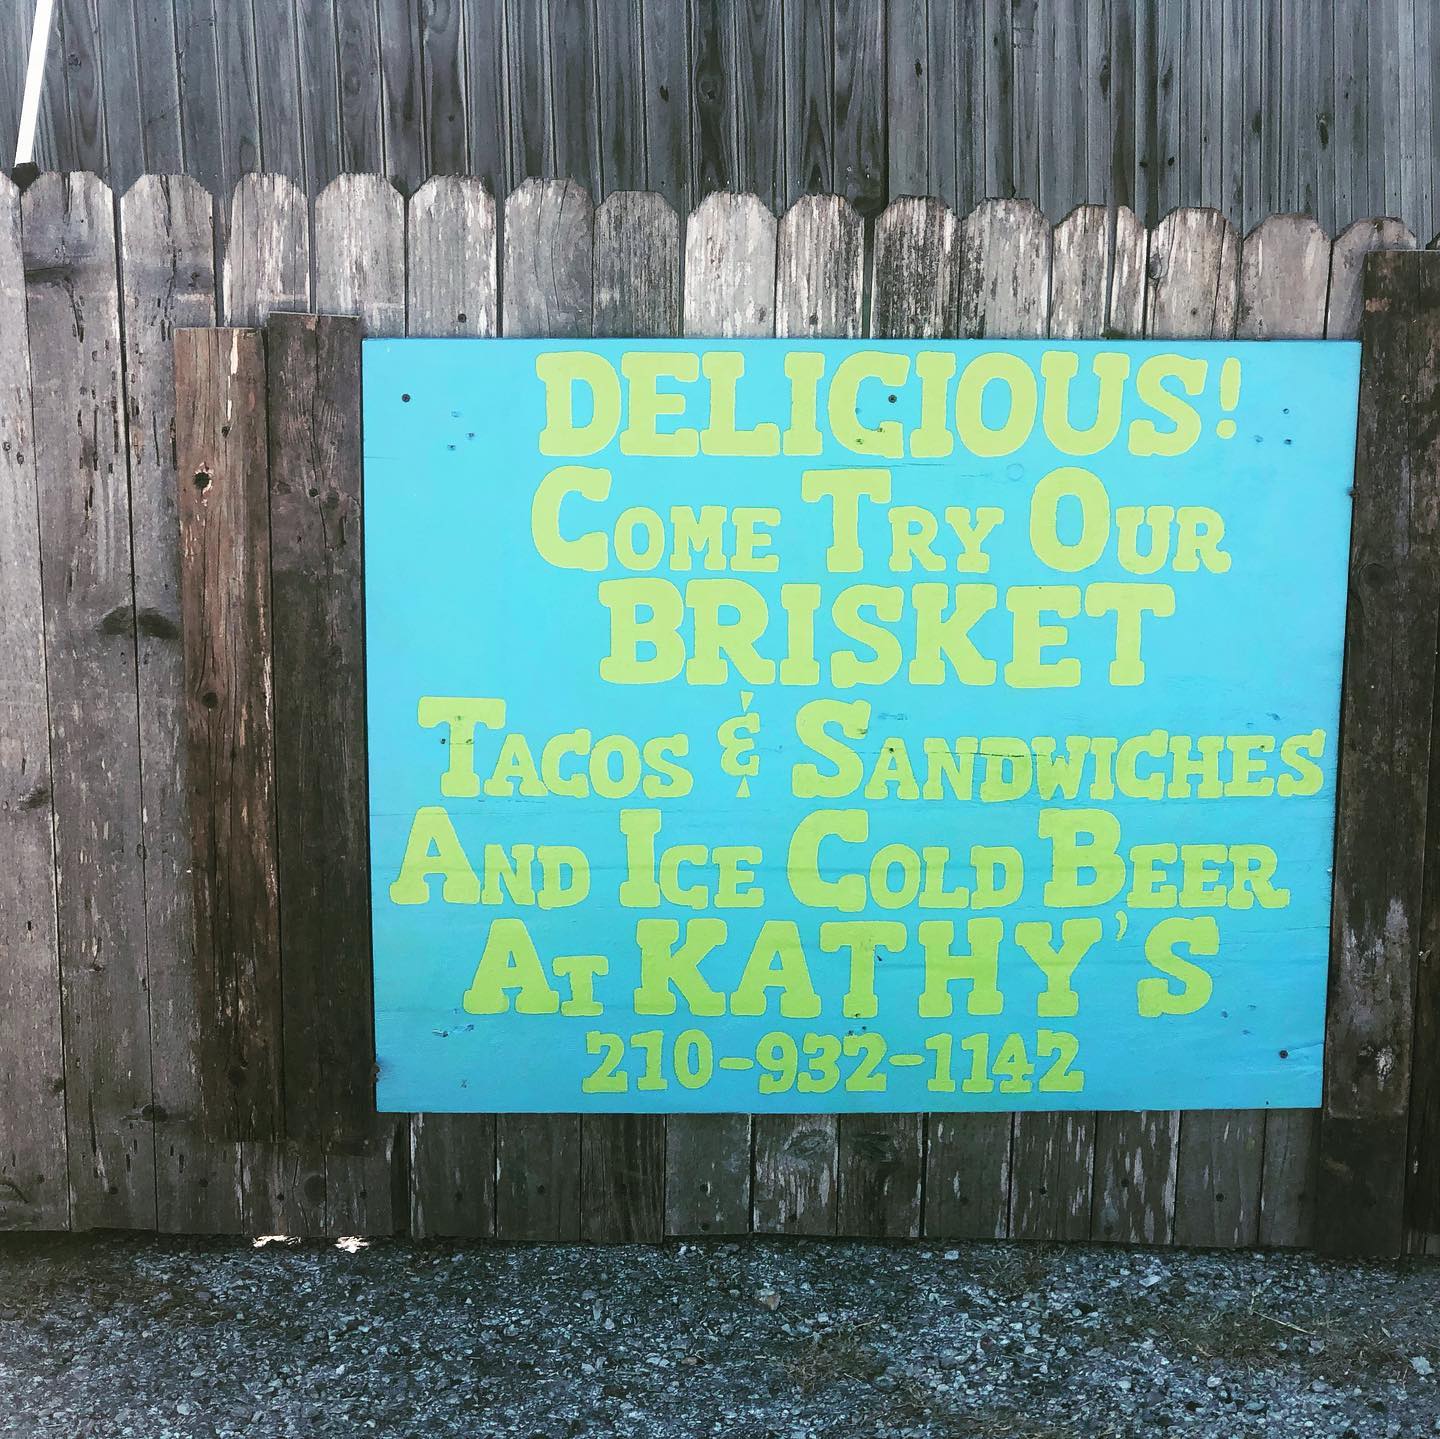 DELICIOUS!
COME TRY OUR
BRISKET
TACOS & SANDWICHES
AND ICE COLD BEER
AT KATHY'S
210-932-1142